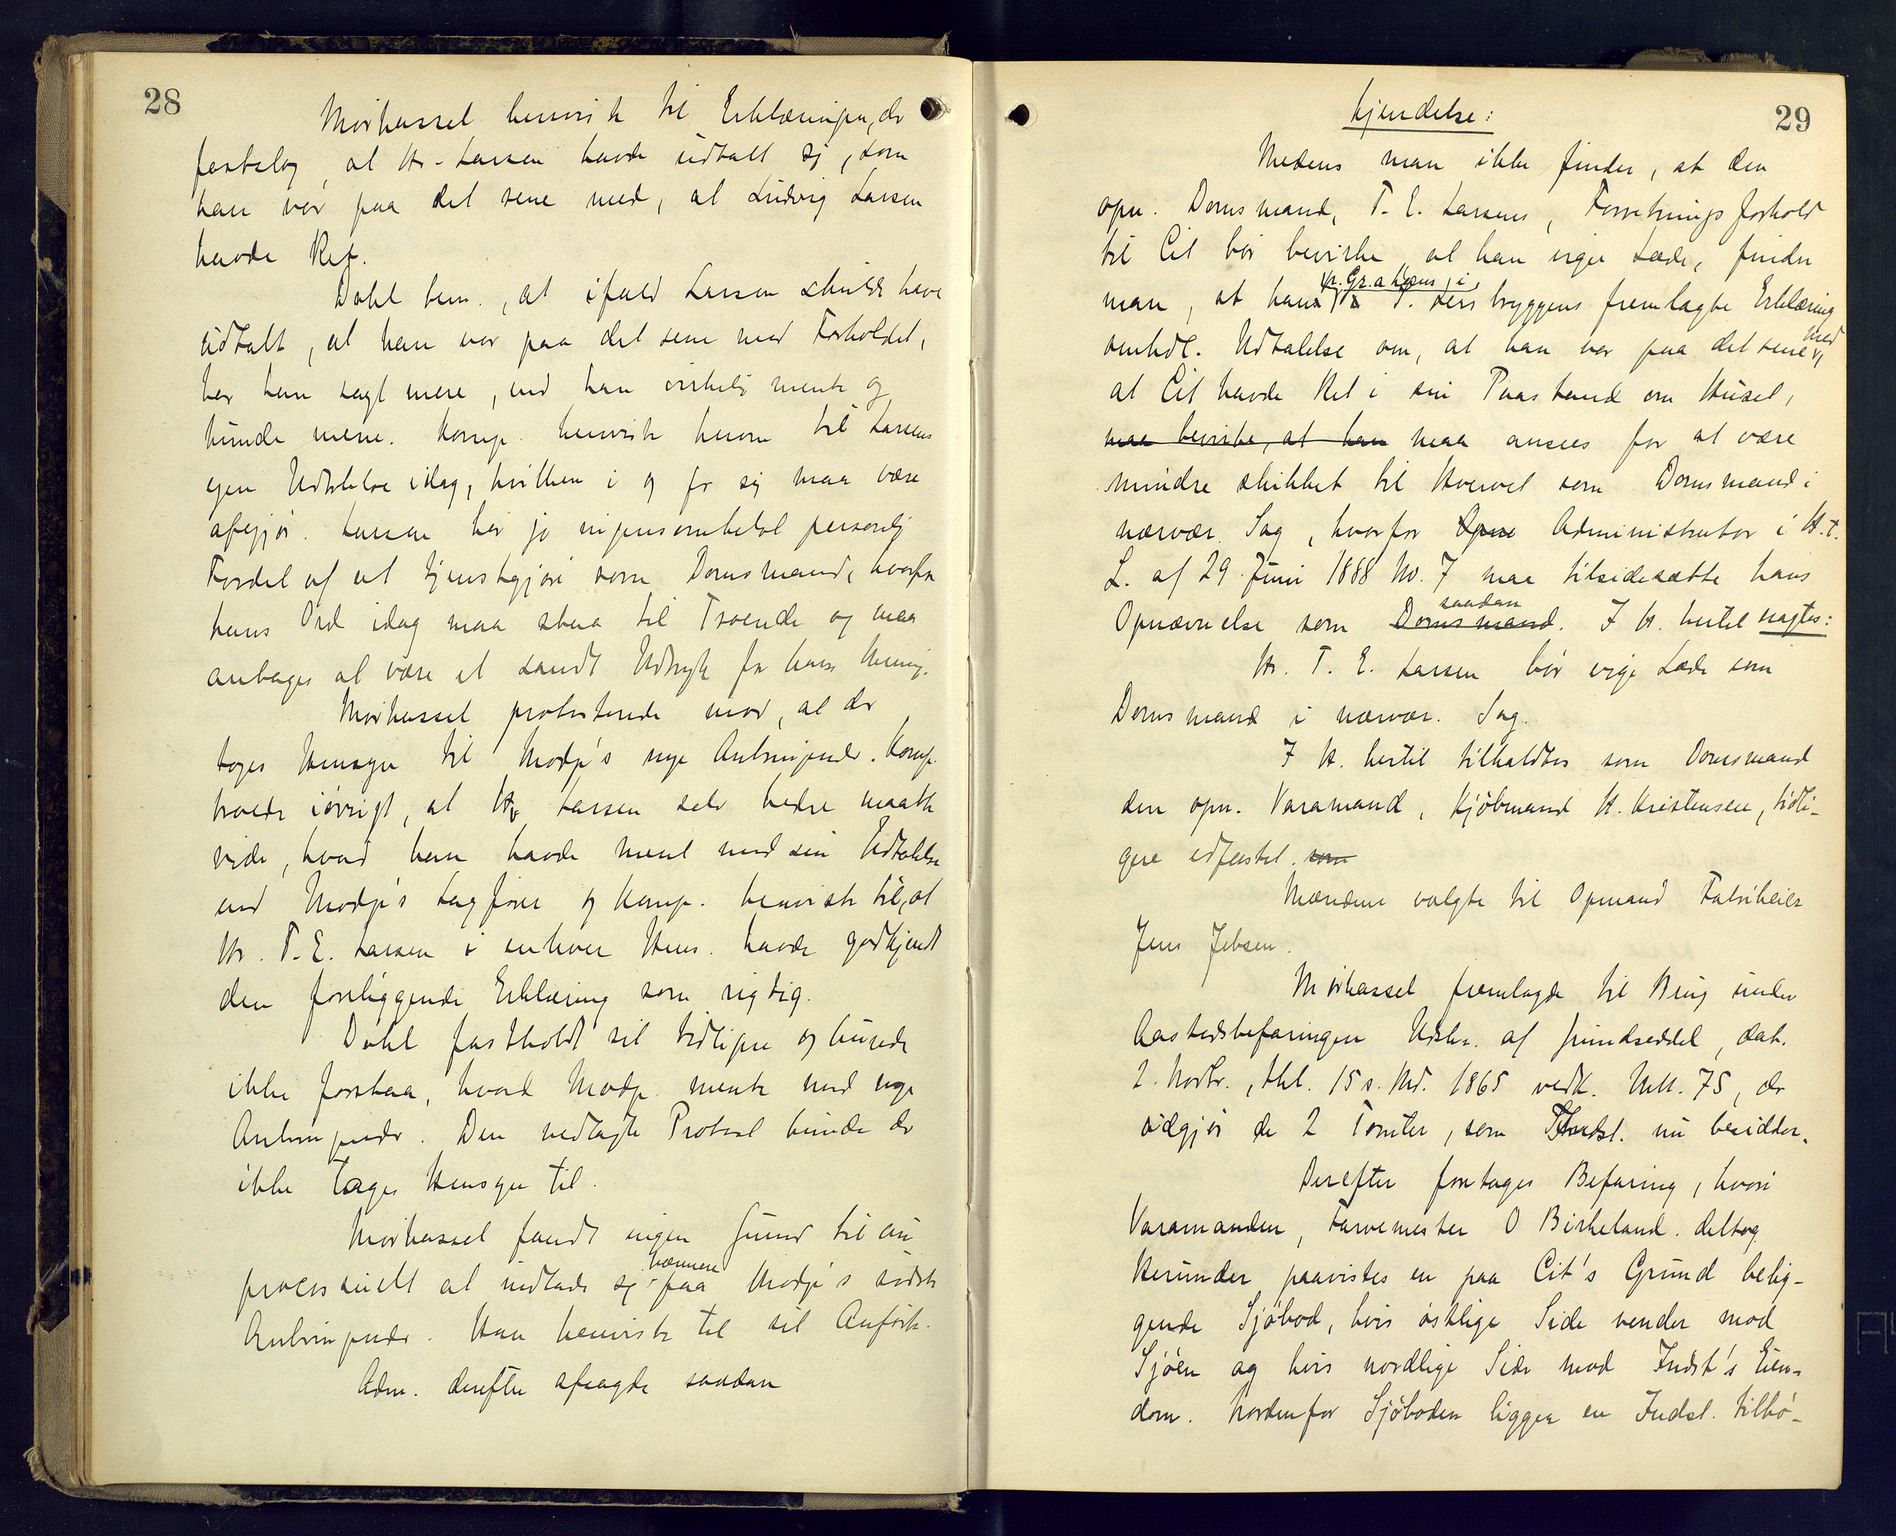 28
Mørkassel henviste til Erklæringen, der
fastslog, at Hr. Larsen havde udtalt sig, som
han var paa det rene med, at Ludvig Larsen
havde Ret.
Dahl bem., at ifald Larsen skulde have
udtalt, at han var paa det rene med Forholdet,
har han sagt mere, end han virkelig mente og
kunde mene. Komp. henviste herom til Larsens
egen Udtalelse idag, hvilken i og for sig maa være
afgjør. Larsen har jo ingensomhelst personlig
Fordel af at tjenstgjøre som Domsmand, hvorfor
hans Ord idag maa staa til Troende og maa
antages at være et sandt Udtryk for hans Mening.
Mørkassel protesterede mod, at der
toges Hensyn til Modp's nye Anbringender. Komp.
troede iøvrigt, at Hr Larsen selv bedre maatte
vide, hvad han havde ment med sin Udtalelse
end Modp's Sagfører og Komp. henviste til, at
Hr. T. E. Larsen i enhver Hens. havde godkjendt
den foreliggende Erklæring som rigtig.
Dahl fastholdt sit tidligere og kunde
ikke forstaa, hvad Modp. mente med nye
Anbringender. Den nedlagte Protest kunde der
ikke tages Hensyn til.
Mørkassel fandt ingen Grund til nu
processuelt at indlade sig nærmere paa Modp's sidste
Anbringender. Han henviste til sit Anførte.
Adm. derefter afsagde saadan
29
Kjendelse:
Medens man ikke finder, at den
opn. Domsmand, T. E. Larsens, Forretningsforhold
til Cit bør bevirke, at han viger Sæde, finder
man, at hans, i T. bryggens fremlagte Erklæring
omhdl. Udtalelse om, at han var paa det rene med,
at Cit havde Ret i sin Paastand om Huset,
maa bevirke, at han maa ansees for at være
mindre skikket til Hvervet som Domsmand i
nærvær. Sag, hvorfor Administrator i H. t.
L. af 29 Juni 1888 No. 7 maa tilsidesætte hans
Opnævnelse som Domsmand saadan. I H. hertil sagtes:
Hr. T. E. Larsen bør vige Sæde som
Domsmand i nærvær. Sag.
I H. hertil tilkaldtes som Domsmand
den opn. Varamand, Kjøbmand H. Kristensen, tidli-
gere edfæstet. som
Mændene valgte til Opmand Fabrikeier
Jens Jebsen.
Mørkassel fremlagde til Brug under
Aastedsbefaringen Udskr. af Grundseddel, dat.
2. Novbr., thl. 15 s. Md. 1865 vedk. Mtr. 75, der
udgjør de 2 Tomter, som Indst. nu besidder.
Derefter foretoges Befaring, hvori
Varamanden, Farvemester O Birkeland. deltog.
Herunder paavistes en paa Cit's Grund belig-
gende Sjøbod, hvis østlige Side vender mod
Sjøen og hvis nordlige Side mod Indst's Eien-
dom. Nordenfor Sjøboden ligger en Indst. tilhø-